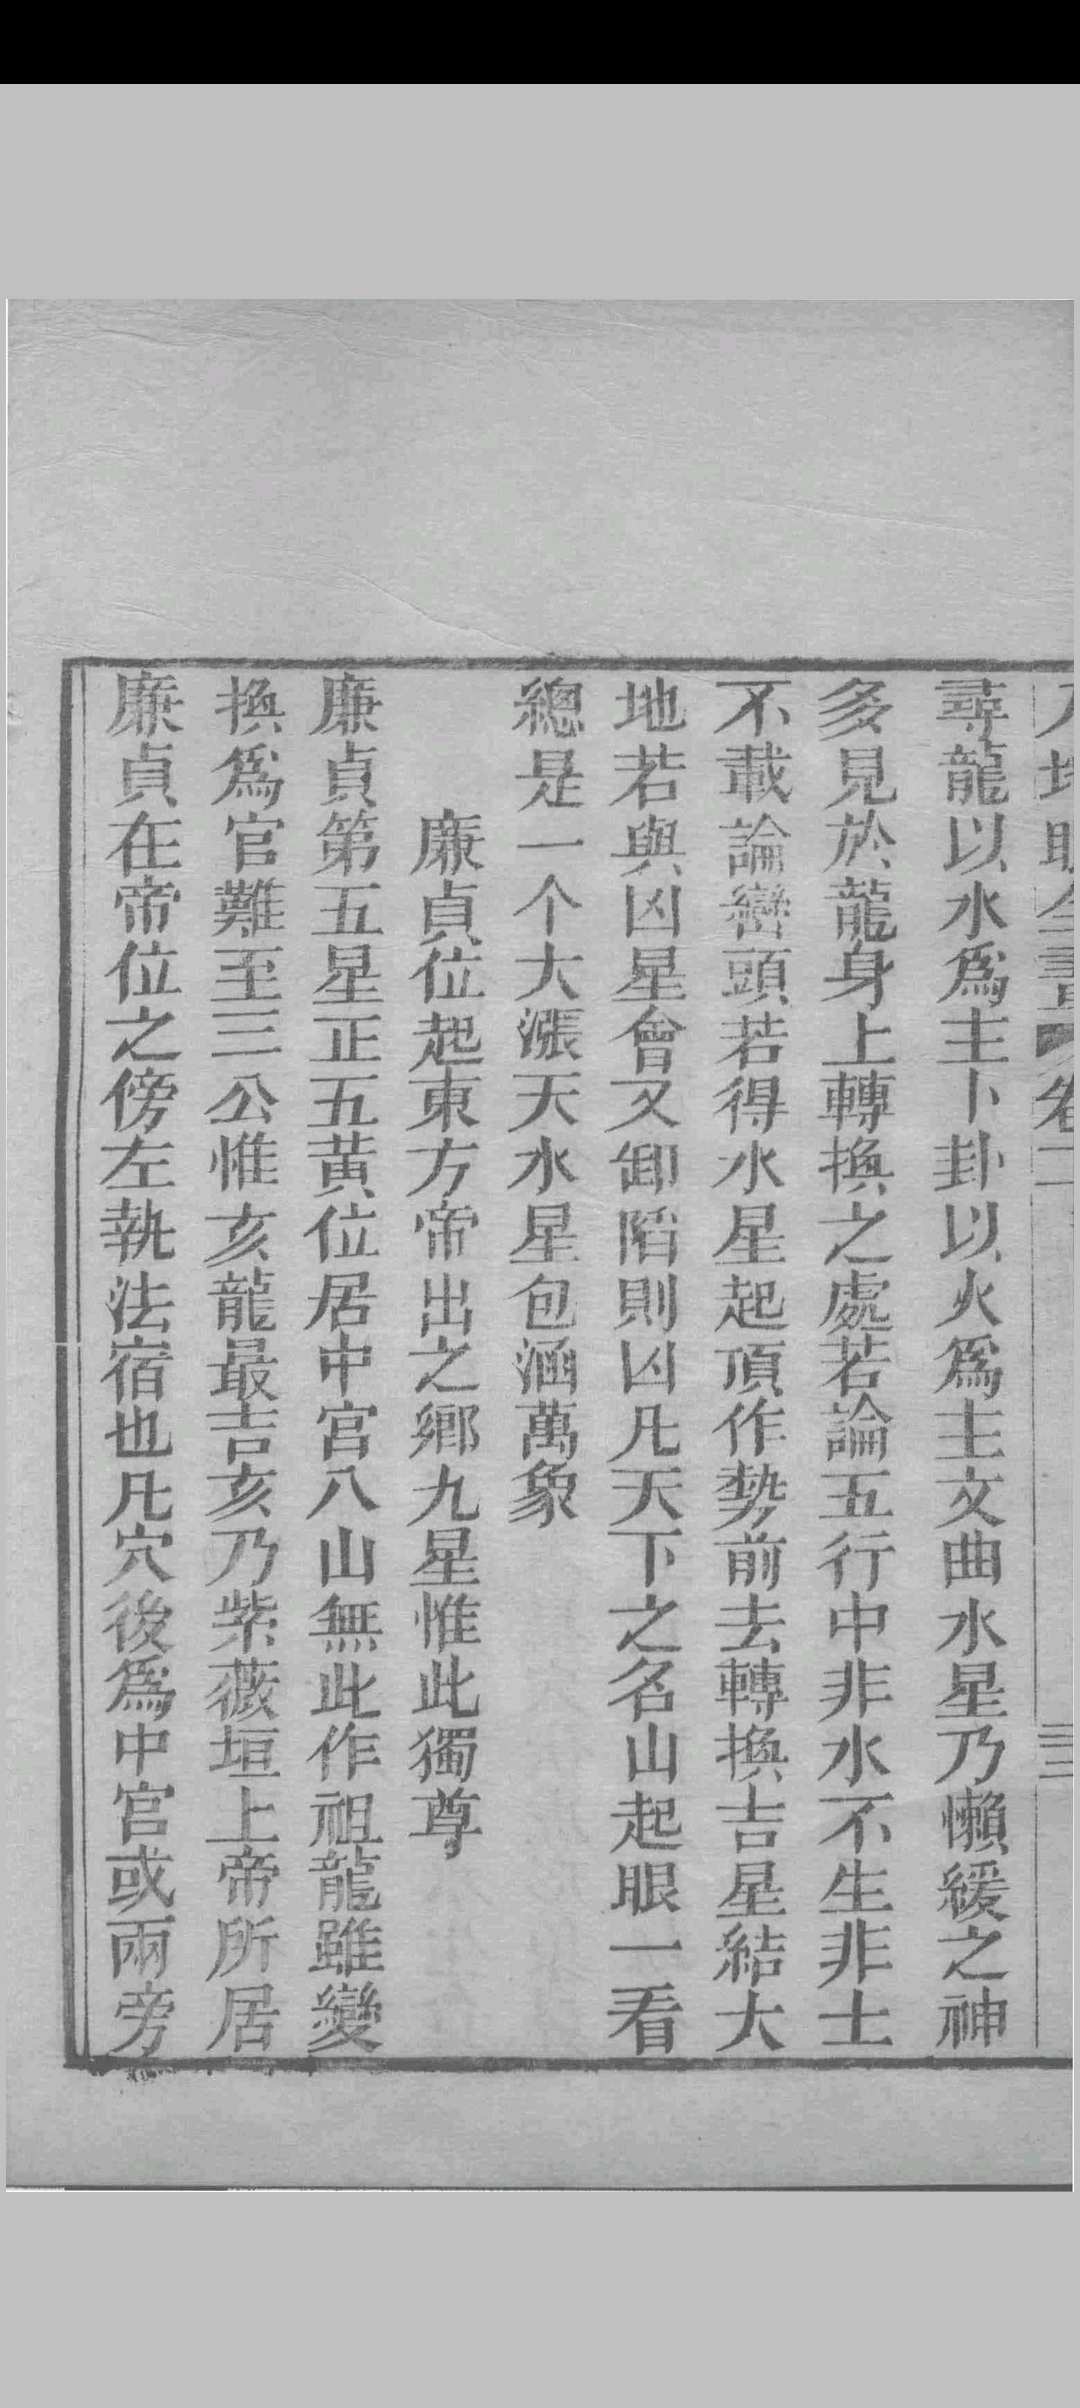 尋龍以水爲主卜卦以火爲主文曲水星乃懶緩之神
多見於龍身上轉換之處若論五行中非水不生非土
不載論巒頭若得水星起頂作勢前去轉換吉星結大
地若與凶星會又卸陷則凶凡天下之名山起眼一看
總是一个大漲天水星包涵萬象
廉貞位起東方帝出之鄉九星惟此獨尊
廉貞第五星正五黃位居中宮八山無此作祖龍雖變
換爲官難至三公惟亥龍最吉亥乃紫薇垣上帝所居
廉貞在帝位之傍左執法宿也凡穴後爲中官或兩旁